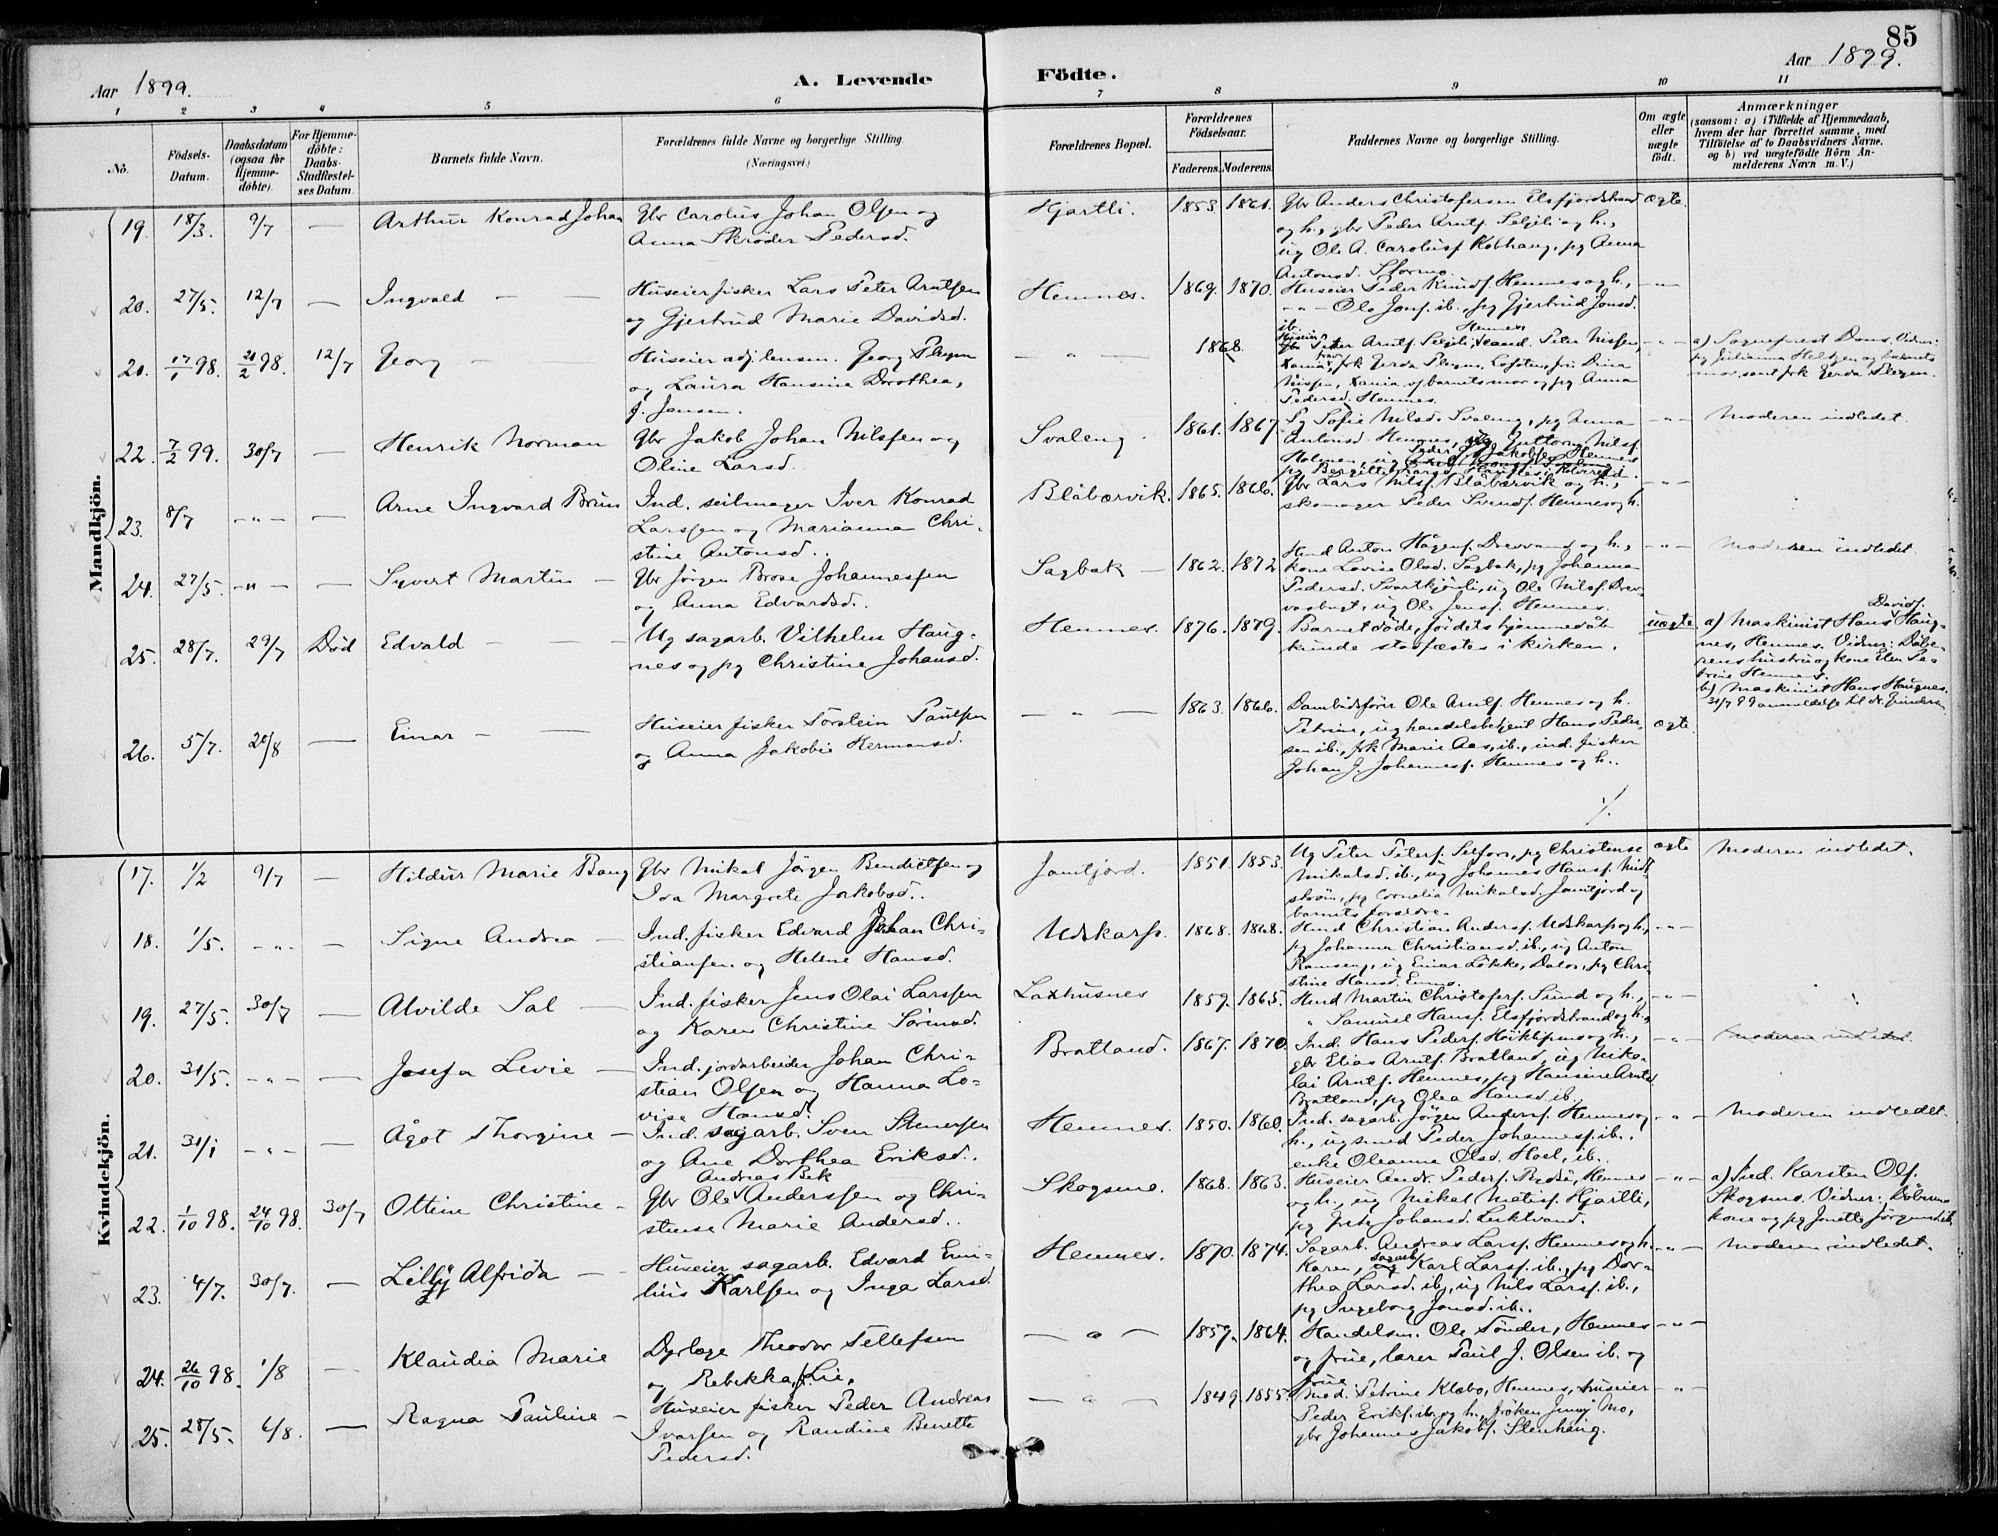 85
Aar 1899.
A. Levende
Födte.
Aar 1899.
1 2 3 4 5 6 7 8 9 10 11
No.
Födsels-
Datum.
Daabsdatum
(ogsaa for
Hjemme-
döbte).
For Hjemme-
döbte:
Daabs-
Stadfæstel-
ses Datum.
Barnets fulde Navn.
Forældrenes fulde Navne og borgerlige Stilling
(Næringsvei.)
Forældrenes Bopæl.
Forældrenes
Födselsaar.
Faderens. Moderens.
Faddernes Navne og borgerlige Stilling.
Om ægte
eller
uægte
födt.
Anmærkninger
(saasom: a) i Tilfælde af Hjemmedaab,
hvem der har forrettet samme, med
Tilföielse af to Daabsvidners Navne,
og b) ved uægtefödte Börn An-
melderens Navn m. V.)
Mandkjön.
19. 18/3 9/7 — Arthur Konrad Johan
Gbr Carolus Johan Olsen og
Anna Skröder Pedersd.
Hjartli. 1853. 1861.
Gbr Anders Christofersen Elsfjordstrand
og h., gbr Peder Arntf. Seljeli og h.,
ug Ole A. Carolusf. Kobhaug, pg Anna
Antonsd. Stormo.
ægte.
20. 27/5. 12/7 — Ingvald — —
Huseier fisker Lars Peter Arntsen
og Gjertrud Marie Davidsd.
Hemnes. 1869. 1870.
Huseier Peder Knudf. Hemnes og h.,
— " — Ole Jonf. ib., pg Gjertrud Jonsd.
ib.
— " —
21. 17/1 98. 21/2 98. 12/7 Georg —
Huseier adj. lensm. Georg Plegen
og Laura Hansine Dorothea,
f. Jensen.
— " — 1868.
Huseier Peder Arntf. Seljeli, Hemnes, Peter Nissen,
Xania, frk Gerda Plegen, Lofoten, fru Dina
Nissen, Xania og barnets mor og pg Anna
Pedersd. Hemnes.
— " —
a) Sogneprest Dons. Vidner:
pg Julianna Heltzen og barnets
mor samt frk Gerda Plegen.
22. 7/2 99. 30/7 — Henrik Norman
Gbr Jakob Johan Nilssen og
Oline Larsd.
Svaleng. 1861. 1867
Pg Sofie Nilsd. Svaleng, pg Anna
Antonsd. Hemnes, ug Guttorm Nilsf.
Holmen, ug Peder Jakobsen Hemnes
pg Bergitte
— " —
Moderen indledet.
23. 8/7 — " — — Arne Ingvard Brun
Ind. seilmager Iver Konrad
Larssen og Marianna Chri-
stine Antonsd..
Blåbærvik. 1865. 1866.
Gbr Lars Nilsf. Blåbærvik og h.,
skomager Peder Svendf. Hemnes og h.
— " —
24. 27/5. — " — — Syvert Martin —
Gbr Jörgen Brose Johannessen
og Anna Edvardsd..
Sagbak — 1862. 1872
Hmd Anton Hågenf. Drevvand og h.,
kone Lovise Olsd. Sagbak, pg Johanna
Pedersd. Svartkjönli, ug Ole Nilsf. Drev-
vasbugt, ug Ole Jensf. Hemnes.
— " —
Moderen indledet.
25. 28/7. 29/7 Död Edvald — — —
Ug sagarb. Vilhelm Haug-
nes og pg Christine Johansd.
Hemnes. 1876. 1879.
Barnet döde, för dets hjemmedåb
kunde stadfæstes i kirken.
uægte
a) Maskinist Hans Davidf. Haug-
nes, Hemnes. Vidner: Döbe-
rens hustru og kone Elen Pe-
trine Hemnes.
b) Maskinist Hans Haugnes.
31/7 99 anmeldelse til
26. 5/7. 20/8 — Einar — —
Huseier fisker Torstein Paulsen
og Anna Jakobie Hermansd.
— " — 1863. 1866.
Dambådsförer Ole Arntf. Hemnes og h.
Petrine, ug handelsbetjent Hans Peder-
sen ib., frk Marie Aas, ib., ind. fisker
Johan J. Johannesf. Hemnes og h..
ægte.
Kvindekjön.
17. 1/2 9/7 — Hildur Marie Bang
Gbr Mikal Jörgen Bendictsen og
Ida Margrete Jakobsd..
Jamtjord. 1851. 1853.
Ug Peter Petersf. Selfors, pg Christense
Mikalsd. ib., ug Johannes Hansf. Midt-
ström, pg Cornelia Mikalsd. Jamtjord og
barnets forældre.
ægte
Moderen indledet.
18. 1/5. — " — — Signe Andrea —
Ind. fisker Edvard Johan Chri-
stiansen og Helene Hansd.
Udskarp. 1868. 1868.
Hmd Christian Andersf. Udskarp og h.,
pg Johanna Christiansd. ib., ug Anton
Ramseng, ug Einar Lökke, Dalos, pg Chri-
stine Hansd. Ennes.
— " —
19. 27/5. 30/7 — Alvilde Sal —
Ind. fisker Jens Olai Larssen
og Karen Christine Sörensd.
Laxhusnes 1859. 1865.
Hmd Martin Christoferf. Sund og h.,
" Samuel Hansf. Elsfjordstrand og h.,
— " —
20. 31/5. — " — — Josefa Levie —
Ind. jordarbeider Johan Chri-
stian Olsen og Hanna Lo-
vise Hansd.
Bratland. 1867. 1870.
Ind. Hans Pedersf. og h.,
gbr Elias Arntf. Bratland, ug Niko-
lai Arntf. Hemnes, pg Hansine Arntsd.
Bratland, pg Olea Hansd. ib.
— " —
Moderen indledet.
21. 31/1 — " — — Ågot Thorgine —
Ind. sagarb. Sven Stenersen
og Ane Dorthea Eriksd..
Hemnes. 1850. 1860.
Ind. sagarb. Jörgen Andersf. Hemnes og
h., ug smed Peder Johannesf. ib.,
enke Oleanna Olsd. Hoel, ib..
— " —
Moderen indledet.
22. 1/10 98. 24/10 98. 30/7 Ottine Christine —
Gbr Ole Andreas Bek Anderssen og Chri-
stense Marie Andersd..
Skogsmo. 1868. 1863.
Huseier Andr. Pedersf. Hemnes
og h., ug Mikal Matisf. Hjartli,
pg Johansd. Luktvand.
— " —
a) Ind. Karsten Olf.
Skogsmo. Vidner: Döberens
kone og pg Jonette Jörgensd. ib.
23. 4/7. 30/7. — Lilly Alfrida —
Huseier sagarb. Edvard Emi-
lius Karlsen og Inga Larsd.
Hemnes. 1870. 1874.
Sagarb. Andreas Larsf. Hemnes og h.
Karen, sagarb. Karl Larsf. ib., pg Dor-
thea Larsd. ib., ug Nils Larsf. ib.,
pg Ingeborg Jonsd. ib..
— " —
Moderen indledet.
24. 26/10 98. 1/8 — Klaudia Marie
Dyrlæge Theodor Tellefsen
og Rebekka f. Lie.
— " — 1859. 1864.
Handelsm. Ole Tönder, Hemnes
og frue, lærer Paul J. Olsen ib. og
frue
— " —
25. 28/5. 6/8. — Ragna Pauline —
Huseier fisker Peder Andreas
Ivarsen og Randine Benette
Pedersd.
— " — 1849. 1855.
Mad. Petrine Klæbo, Hemnes, huseier
Peder Erikf. ib. og h., fröken Jenny Mo,
gbr Johannes Jakobf. Stenhaug.
— " —